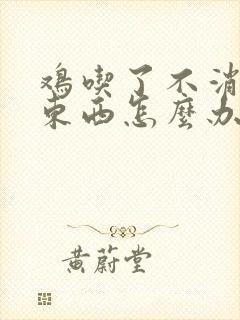 鸡喫了不消
東西怎麼办
黄蔚堂